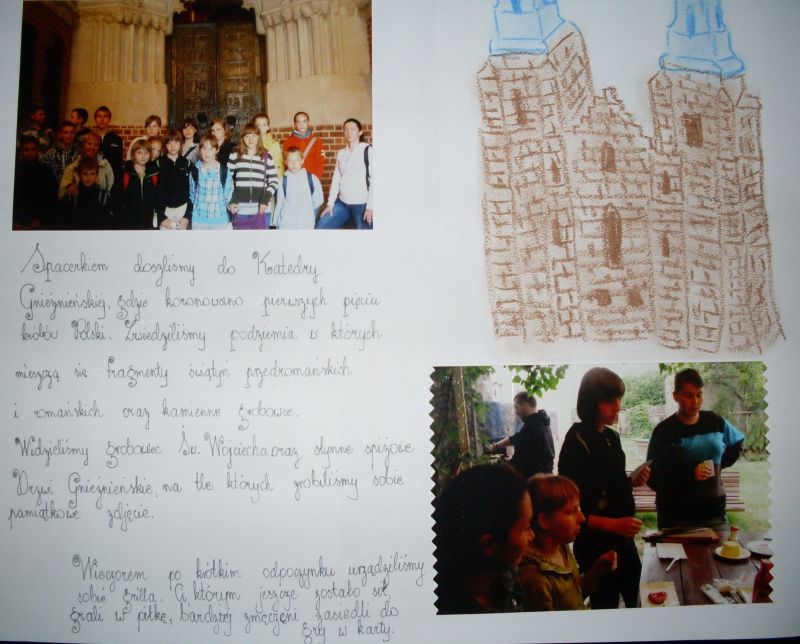 Spacerkiem doszliśmy do Katedry
Gnieźnieńskiej, gdzie koronowano pierwszych pięciu
królów Polski. Zwiedziliśmy podziemia w których
mieszczą się fragmenty świątyń przedromańskich
i romańskich oraz kamienne grobowce.
Widzieliśmy grobowiec Św. Wojciecha oraz słynne spiżowe
Drzwi Gnieźnieńskie, na tle których zrobiliśmy sobie
pamiątkowe zdjęcie.
Wieczorem po krótkim odpoczynku urządziliśmy
sobie grilla. Ci którym jeszcze zostało sił,
grali w piłkę, bardziej zmęczeni zasiedli do
gry w karty.